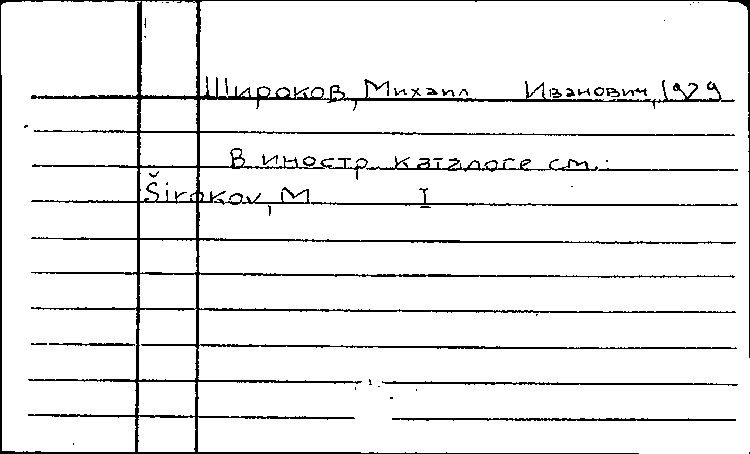 Широков, Михаил Иванович, 1929
В иностр. каталоге см.:
Širokov, M I